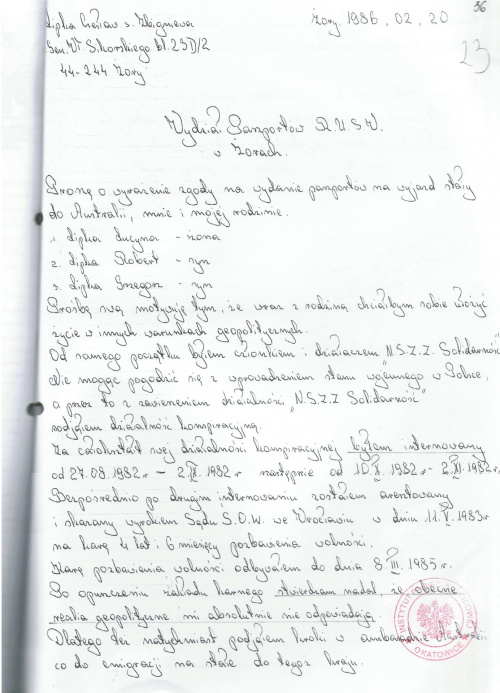 36
Lipka Czesław s. Zbigniewa
Żory. 1986, 02, 20
Gen. Wł. Sikorskiego bl. 23D/2
23
44-244 Żory
Wydział Paszportów R.U.S.W.
w Żorach.
Proszę o wyrażenie zgody na wydanie paszportów na wyjazd stały
do Australii, mnie i mojej rodzinie.
1. Lipka Lucyna - żona
2. Lipka Robert - syn
3. Lipka Grzegorz - syn
Prośbę swą motywuję tym, że wraz z rodziną chciałbym sobie ułożyć
życie w innych warunkach geopolitycznych.
Od samego początku byłem członkiem i działaczem "N.S.Z.Z. Solidarność"
Nie mogąc pogodzić się z wprowadzeniem stanu wojennego w Polsce,
a przez to z zawieszeniem działalności "N.S.Z.Z Solidarność"
podjąłem działalność konspiracyjną.
Za całokształt swej działalności konspiracyjnej byłem internowany
od 27.08.1982r. - 2.IX.1982r. następnie od 10.X.1982r. - 2.XI.1982r.
Bezpośrednio po drugim internowaniu zostałem aresztowany
i skazany wyrokiem Sądu Ś.O.W. we Wrocławiu w dniu 11.V.1983r
na karę 4 lat i 6 miesięcy pozbawienia wolności.
Karę pozbawienia wolności odbywałem do dnia 8.III.1985r.
Po opuszczeniu zakładu karnego stwierdzam nadal, że obecne
realia geopolityczne mi absolutnie nie odpowiadają.
Dlatego też natychmiast podjąłem kroki w ambasadzie Australii
co do emigracji na stałe do tegoż kraju.
KATOWICE